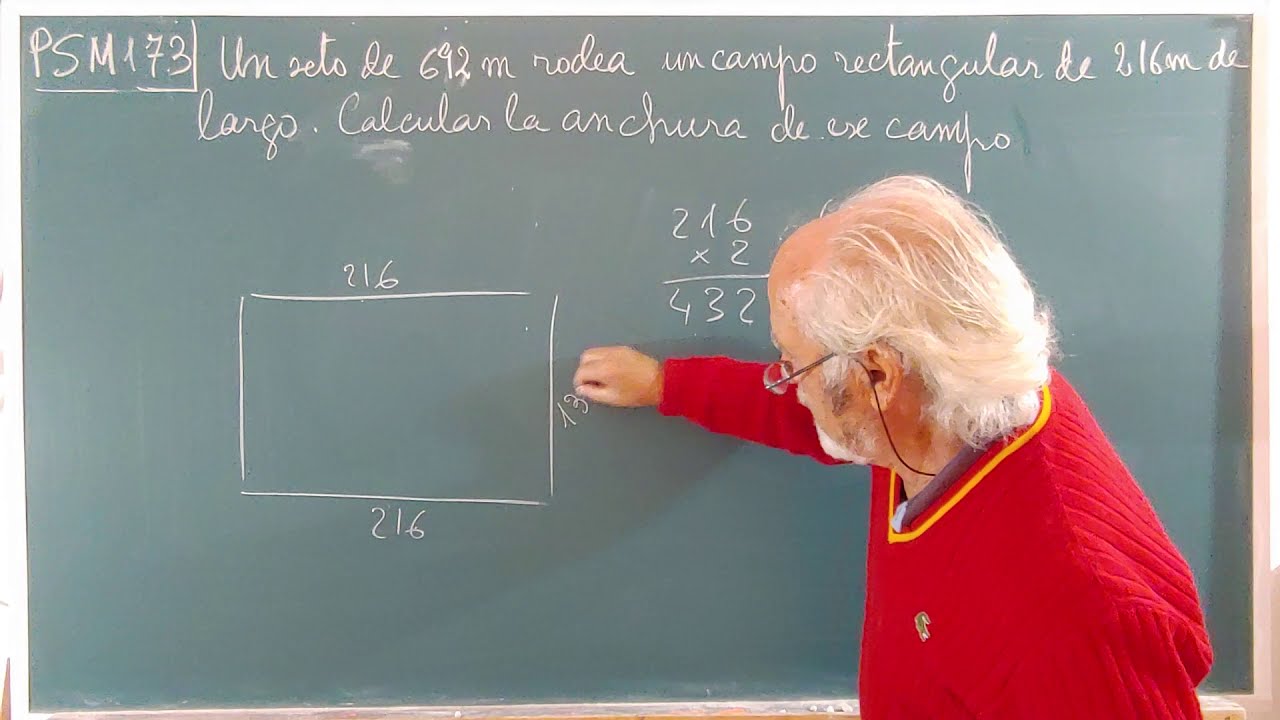 PSM173 Un seto de 692 m rodea un campo rectangular de 216m de
largo. Calcular la anchura de ese campo
216
x 2
432
216
13
216